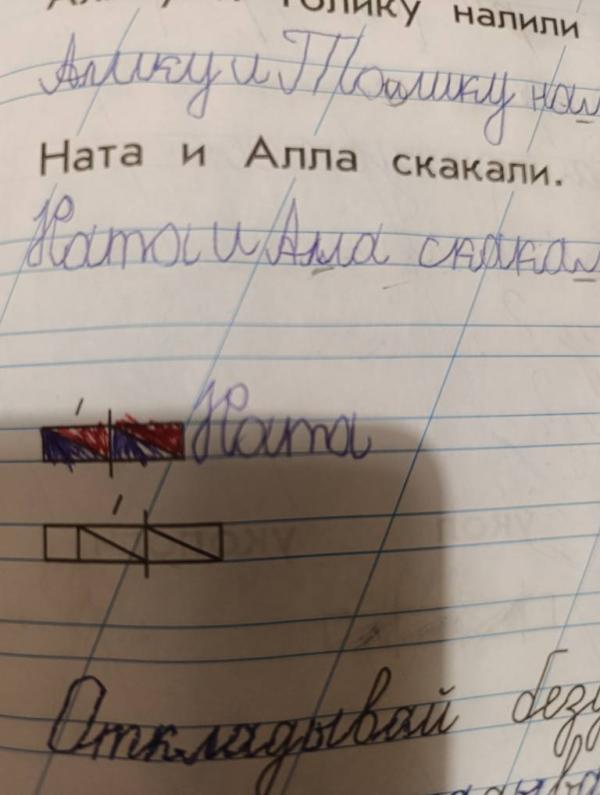 Толику налили
Алику и Толику нал
Ната и Алла скакали.
Ната и Алла скакал
Ната
Откладывай безу